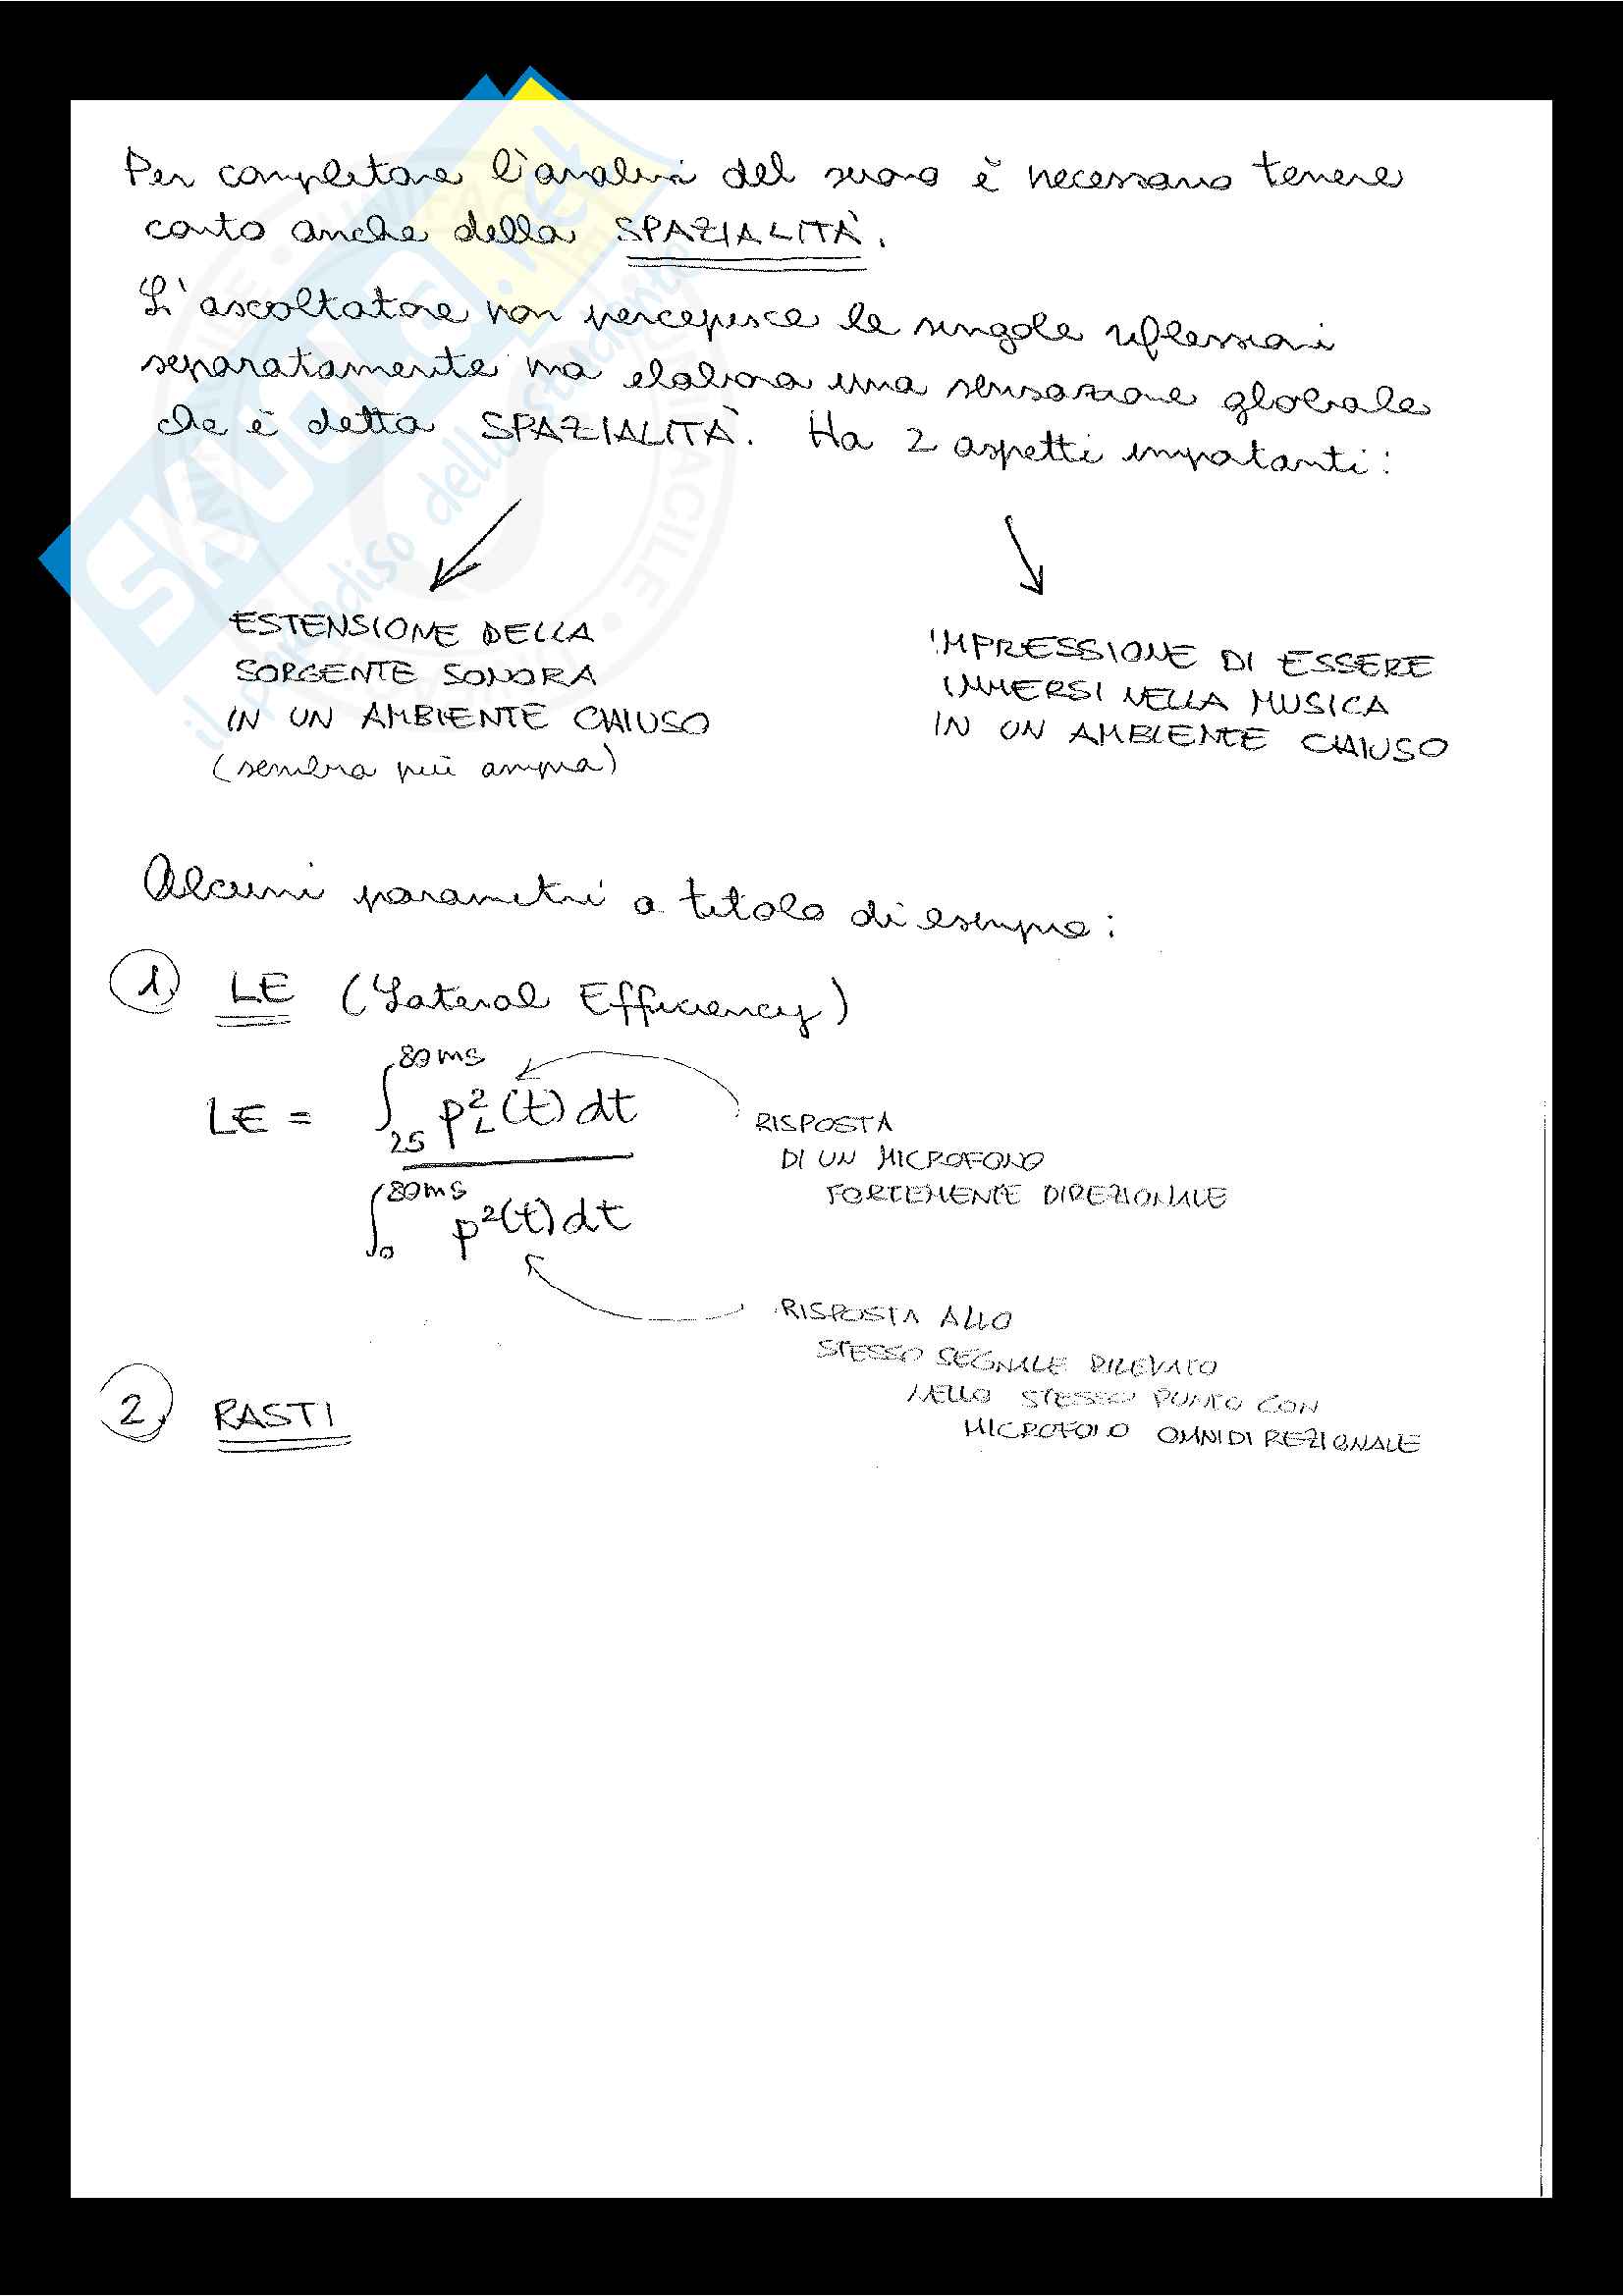 Per completare l'analisi del suono è necessario tenere
conto anche della SPAZIALITÀ.
L'ascoltatore non percepisce le singole riflessioni
separatamente ma elabora una sensazione globale
che è detta SPAZIALITÀ. Ha 2 aspetti importanti:
ESTENSIONE DELLA
SORGENTE SONORA
IN UN AMBIENTE CHIUSO
(sembra più ampia)
IMPRESSIONE DI ESSERE
IMMERSI NELLA MUSICA
IN UN AMBIENTE CHIUSO
Alcuni parametri a titolo di esempio:
1) LE (Lateral Efficiency)
LE = ∫₂₅^80ms p_L²(t) dt / ∫₀^80ms p²(t) dt
RISPOSTA
DI UN MICROFONO
FORTEMENTE DIREZIONALE
RISPOSTA ALLO
STESSO SEGNALE RILEVATO
NELLO STESSO PUNTO CON
MICROFONO OMNIDIREZIONALE
2) RASTI
SKUOLA.net
il paradiso dello studente